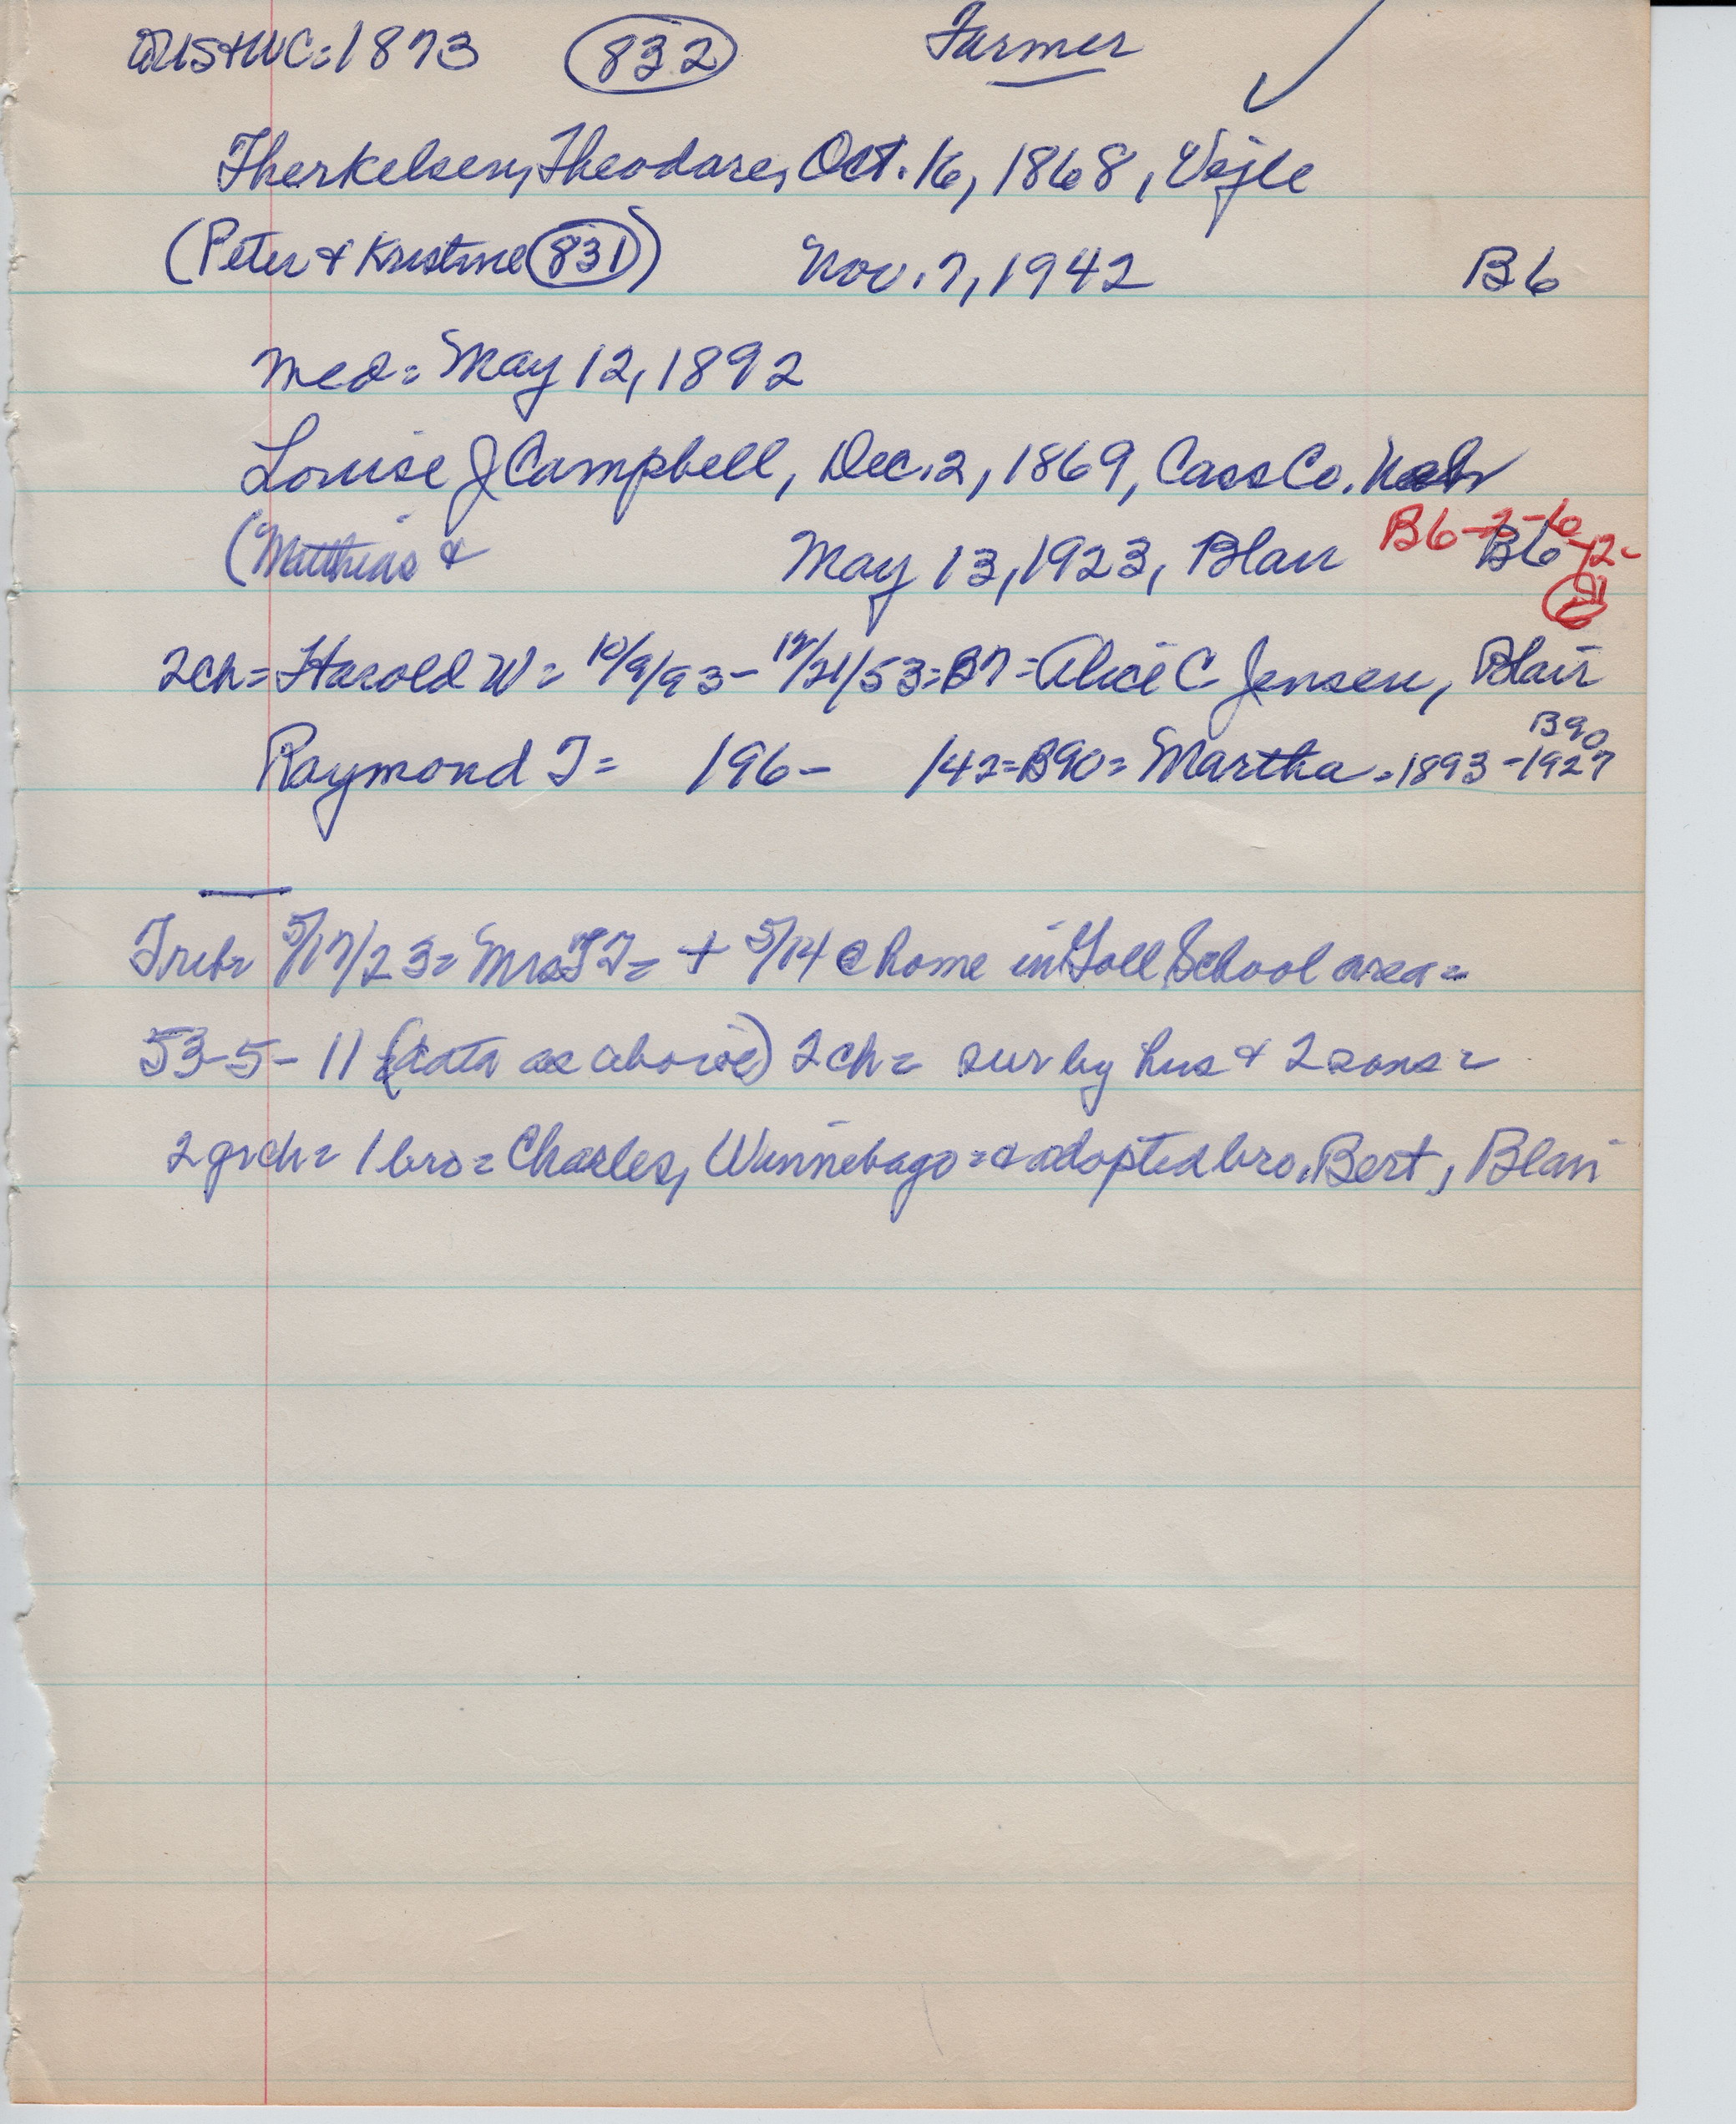 US+WC=1873 (832) Farmer ✓
Therkelsen, Theodore, Oct. 16, 1868, Vejle
(Peter + Kristine (831)) Nov. 7, 1942 B6
Med= May 12, 1892
Louise J Campbell, Dec. 2, 1869, Cass Co. Nebr
(Matthias + May 13, 1923, Blair B6
B6-2-6
12-
2ch= Harold W= 10/9/93- 12/21/53=B7= Alice C Jensen, Blair
Raymond T= /96- /42=B90= Martha=1893-1927
B90
Trib= 5/17/23= Mrs TT= + 5/14 @ home in Goll School area=
53-5-11 (data as above) 2ch= sur by hus + 2 sons=
2 grch= 1 bro= Charles, Winnebago= + adopted bro. Bert, Blair